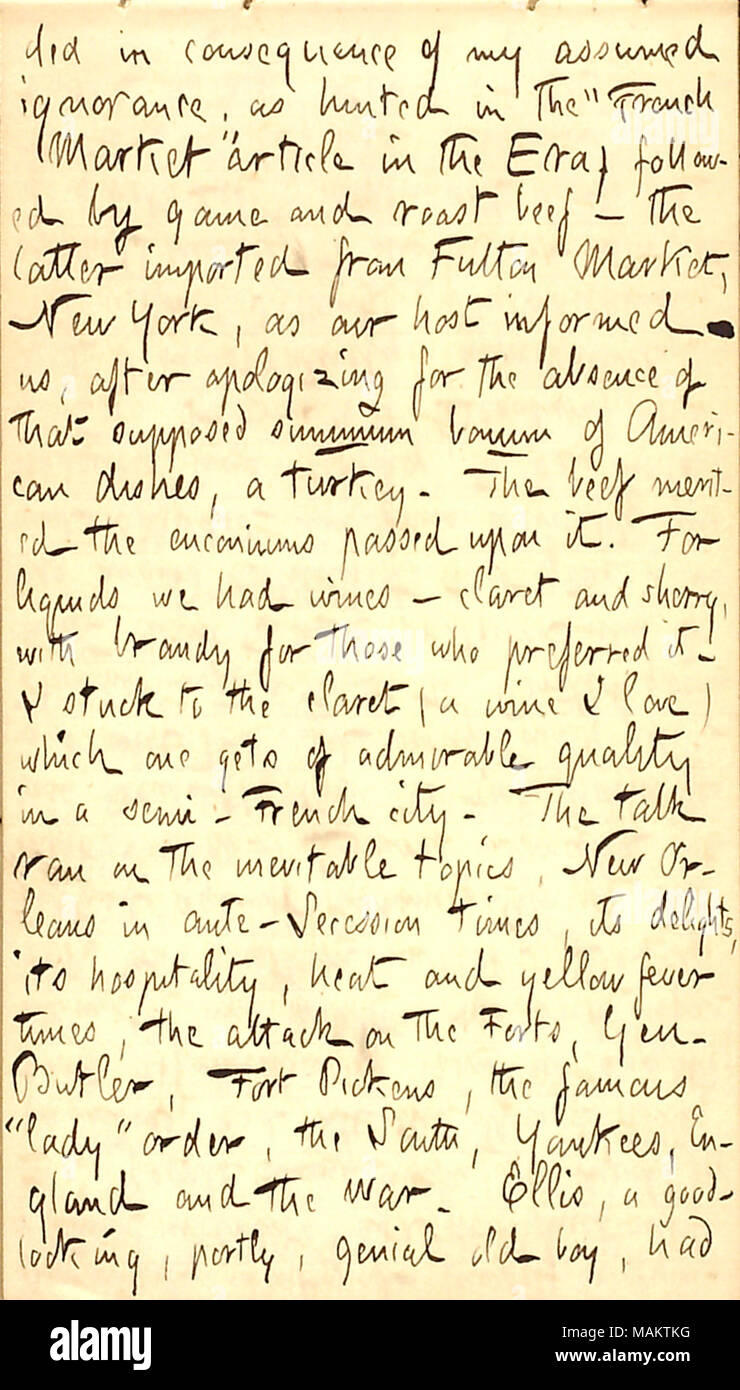 ded in consequence of my assumed
ignorance, as hinted in the "French
Market" article in the Era) follow-
ed by game and roast beef — the
latter imported from Fulton Market,
New York, as our host informed
us, after apologizing for the absence of
that supposed summum bonum of Ameri-
can dishes, a turkey. The beef merit-
ed the encomiums passed upon it. For
liquids we had wines — claret and sherry,
with brandy for those who preferred it.
I stuck to the claret (a wine I love)
which one gets of admirable quality
in a semi-French city. The talk
ran on the inevitable topics, New Or-
leans in ante-Secession times, its delights,
its hospitality, heat and yellow fever
times, the attack on the Forts, Gen.
Butler, Fort Pickens, the famous
"lady" order, the South, Yankees, En-
gland and the war. Ellis, a good-
looking, portly, genial old boy, had
alamy
Image ID: MAKTKG
www.alamy.com